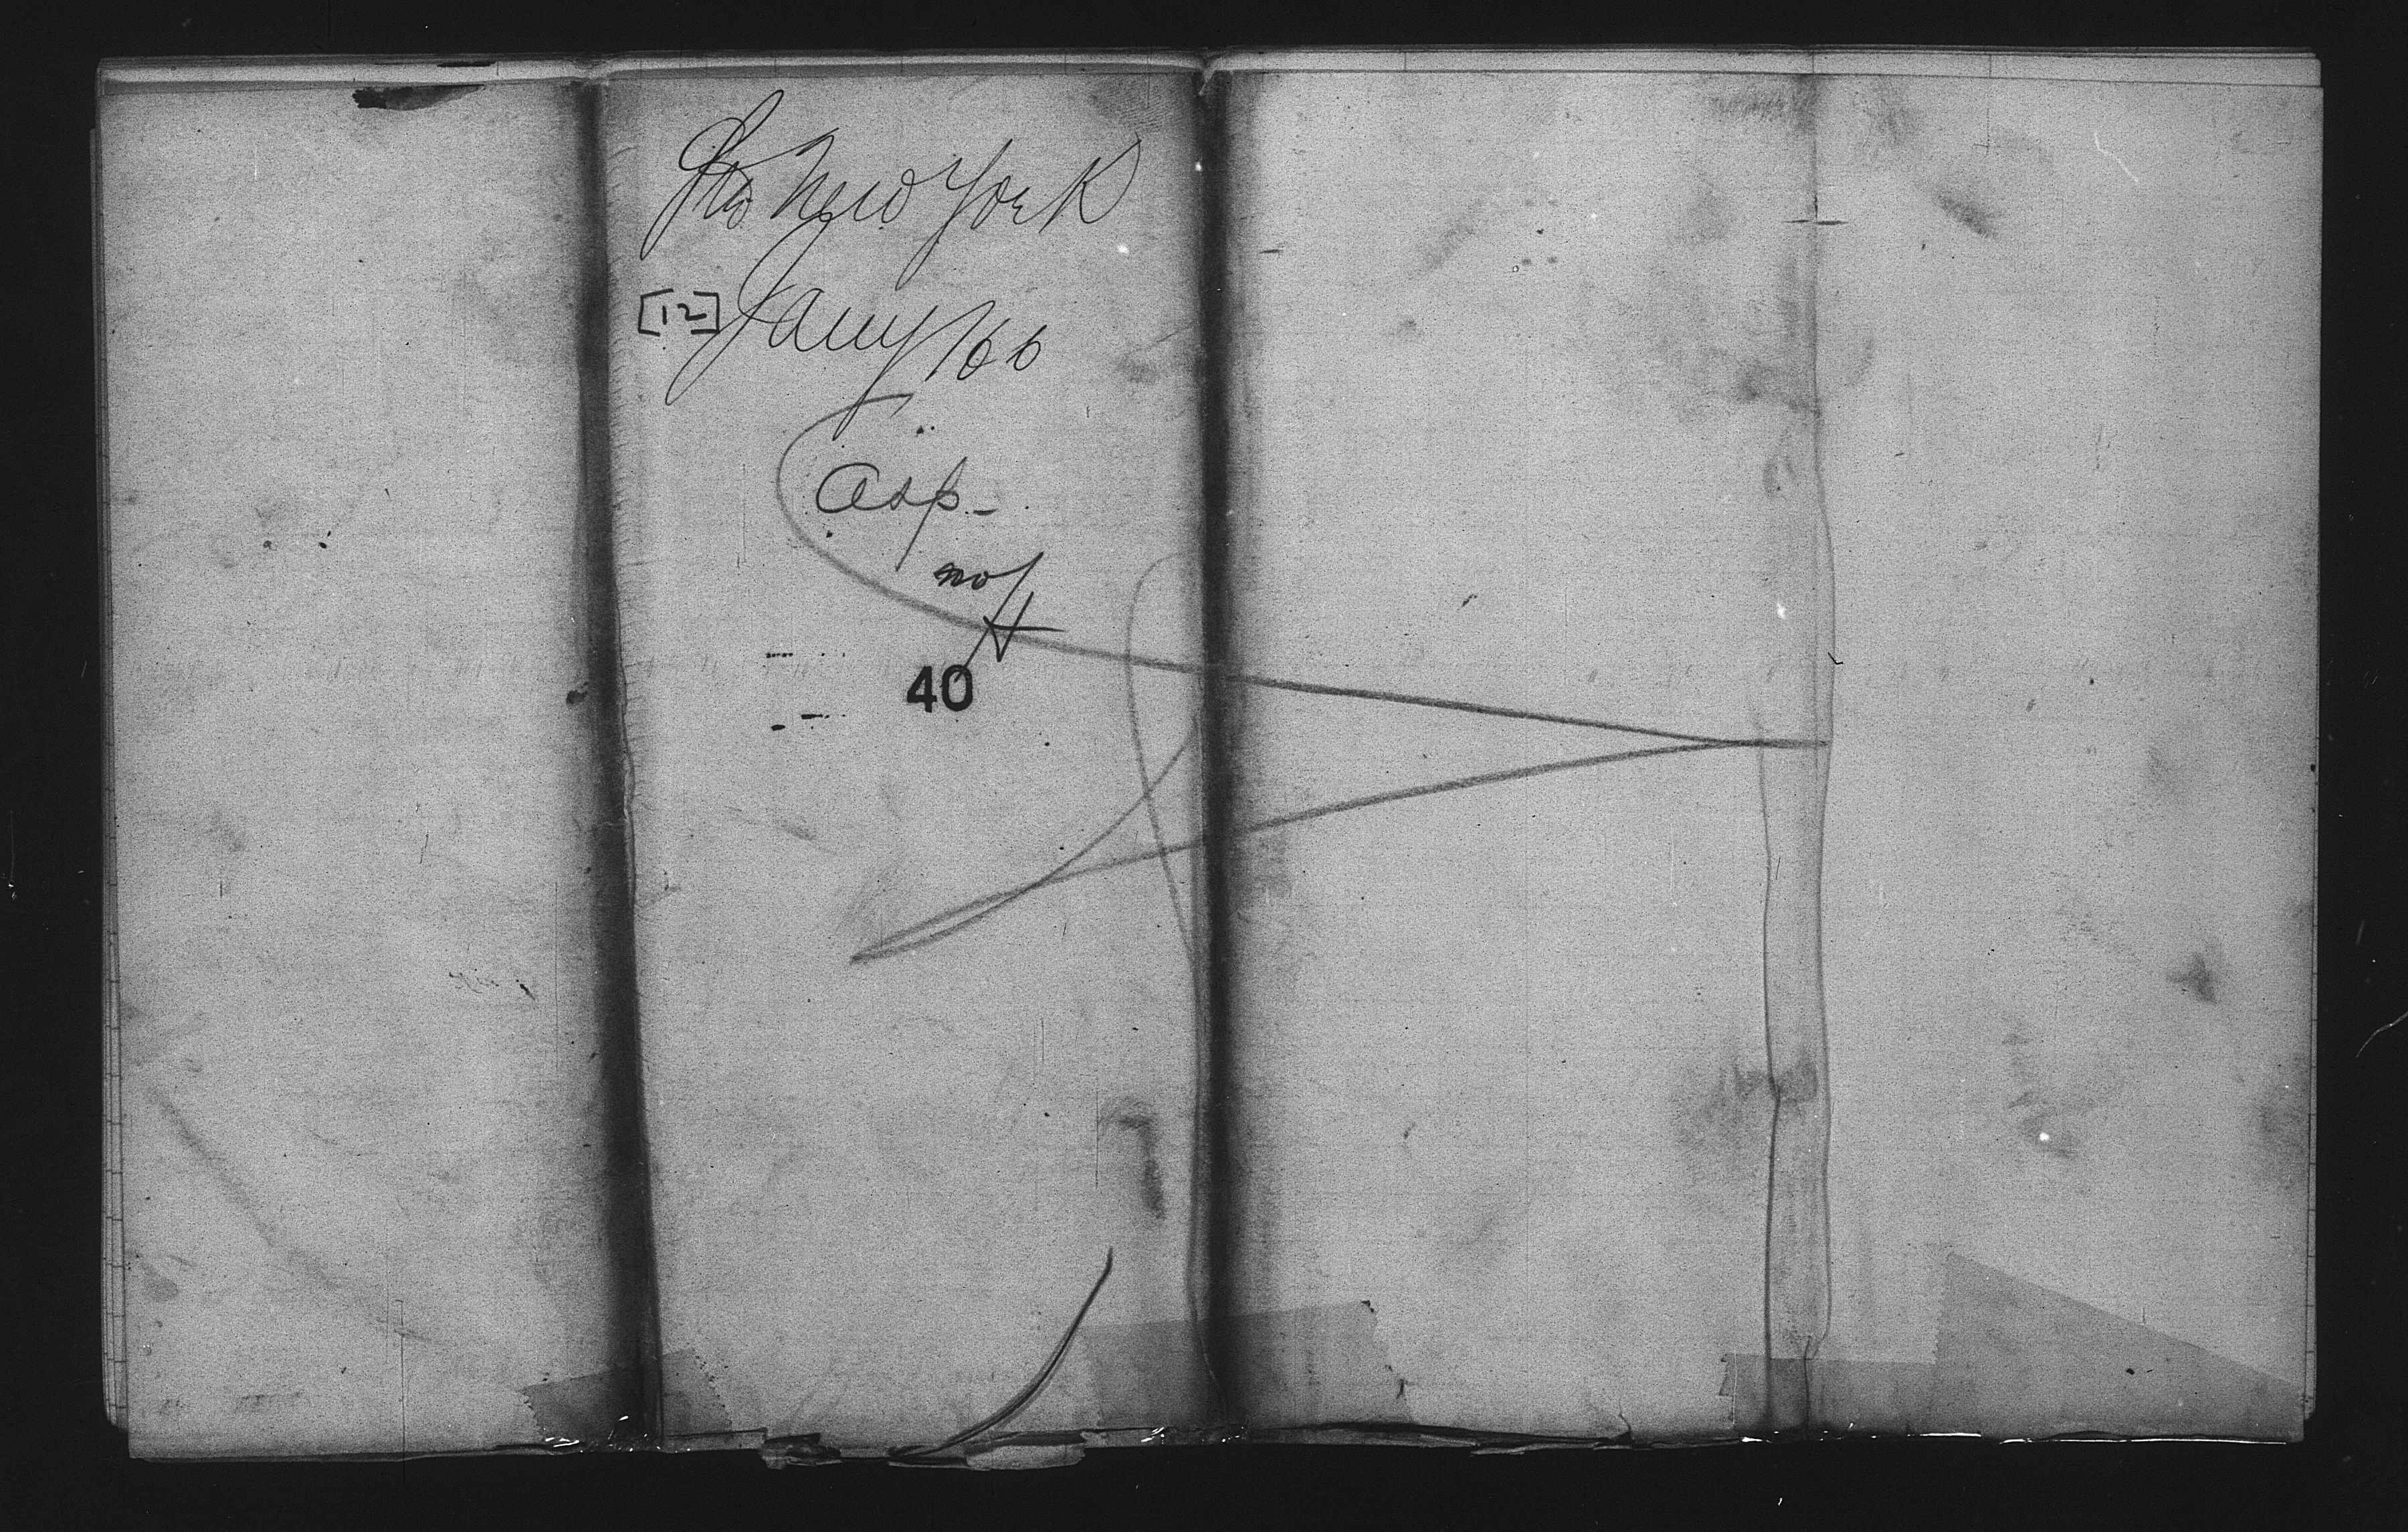 Str New York
[12] Jany 16 6
Asp-
not
40